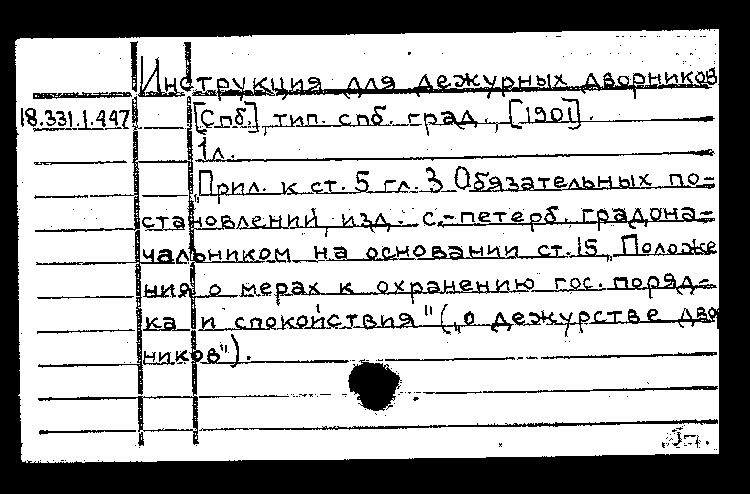 Инструкция для дежурных дворников
18.331.1.447 [Спб.], тип. спб. град., [1901].
1л.
„Прил. к ст. 5 гл. 3 Обязательных по=
становлений, изд. с.-петерб. градона=
чальником на основании ст. 15 „Положе
ния о мерах к охранению гос. поряд=
ка и спокойствия" („о дежурстве дво
ников").